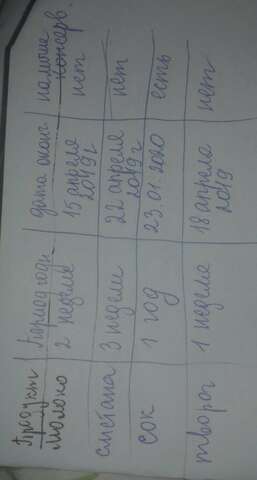 Продукт | Период годн. | дата оконч. | наличие консерв.
молоко | 2 недели | 15 апреля 2019 г | нет
сметана | 3 недели | 22 апреля 2019 г | нет
сок | 1 год | 23.01.2020 | есть
творог | 1 неделя | 18 апреля 2019 | нет